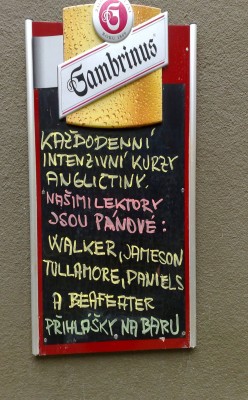 Gambrinus
KAŽDODENNÍ
INTENZIVNÍ KURZY
ANGLIČTINY.
NAŠIMI LEKTORY
JSOU PÁNOVÉ:
WALKER, JAMESON
TULLAMORE, DANIELS
A BEAFEATER
PŘIHLÁŠKY NA BARU